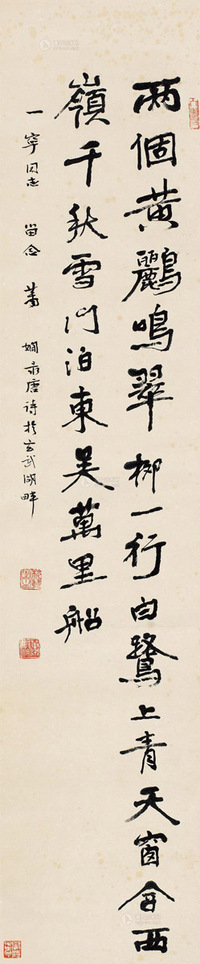 两個黄鸝鳴翠柳一行白鷺上青天窗含西
嶺千秋雪門泊東吴萬里船
一寧同志 留念 蕭嫻录唐詩於玄武湖畔